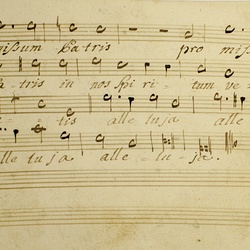 missum Patris pro mis
tris in nos Spi ri - tum ve
tis alleluja alle
lle lu ja alle - lu - ja.